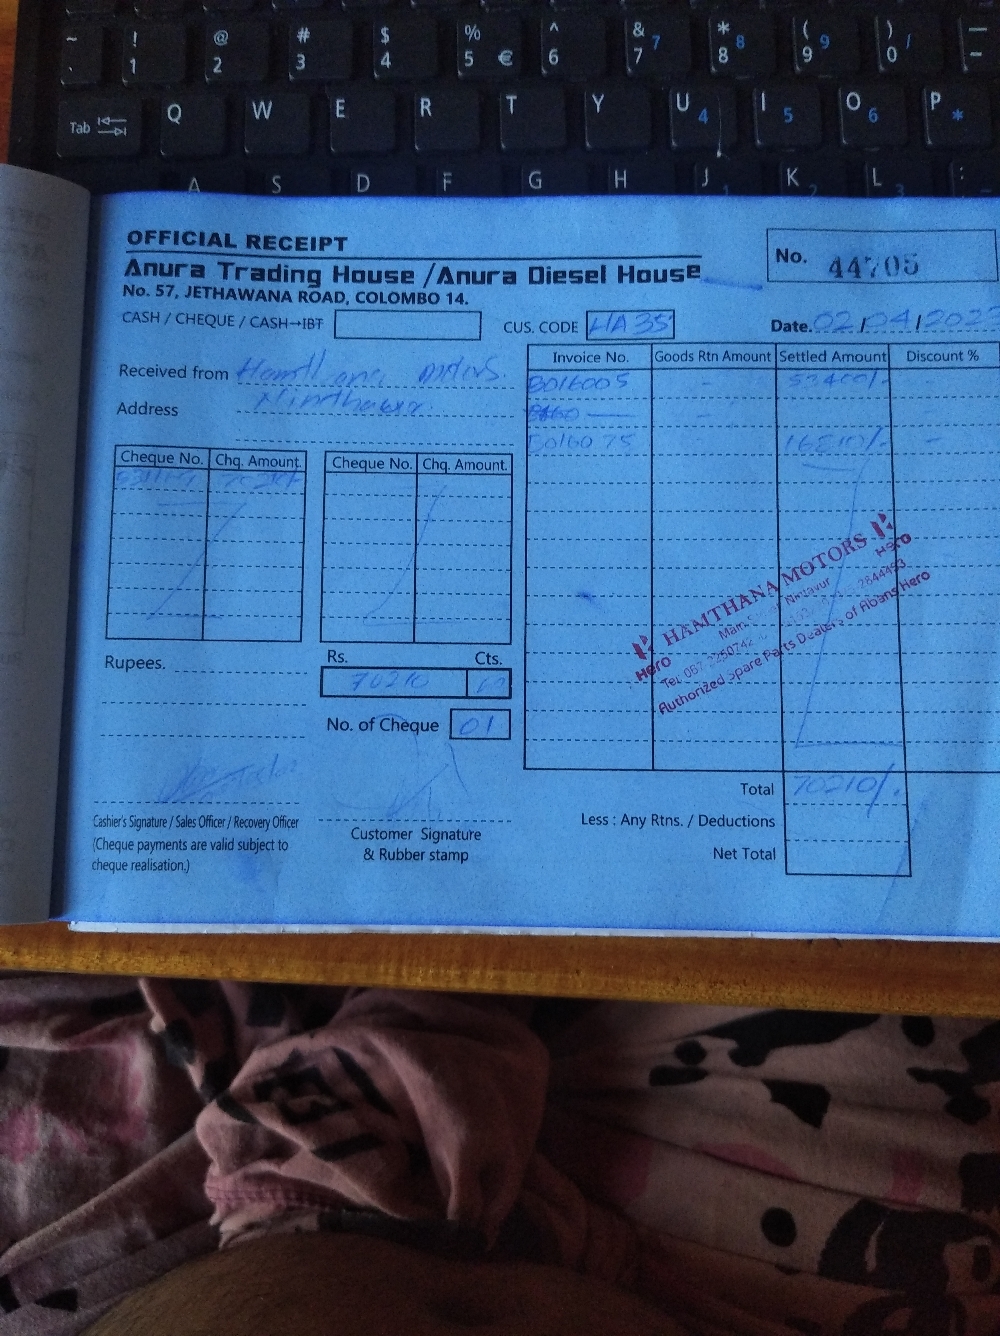 ~ ! @ # $ % ^ & * ( ) —
` 1 2 3 4 5 € 6 7 7 8 8 9 9 0 / -
Tab Q W E R T Y U 4 I 5 O 6 P *
A S D F G H J K L :
OFFICIAL RECEIPT
Anura Trading House /Anura Diesel House
No. 57, JETHAWANA ROAD, COLOMBO 14.
No. 44705
CASH / CHEQUE / CASH→IBT
CUS. CODE HA 35
Date. 02/04/202
Received from Hamthana Motors.
Address Ninthavur
Invoice No. Goods Rtn Amount Settled Amount Discount %
B016005 - 53400/- -
B0160 75 16810/- -
Cheque No. Chq. Amount. Cheque No. Chq. Amount.
HAMTHANA MOTORS
Hero Hero
Main Nintavur
Tel: 067 2250742 2644493
Authorized Spare Parts Dealers of Abans Hero
Rupees. Rs. Cts.
70210
No. of Cheque 01
Total 70210/-
Less : Any Rtns. / Deductions
Net Total
Cashier's Signature / Sales Officer / Recovery Officer
(Cheque payments are valid subject to
cheque realisation.)
Customer Signature
& Rubber stamp